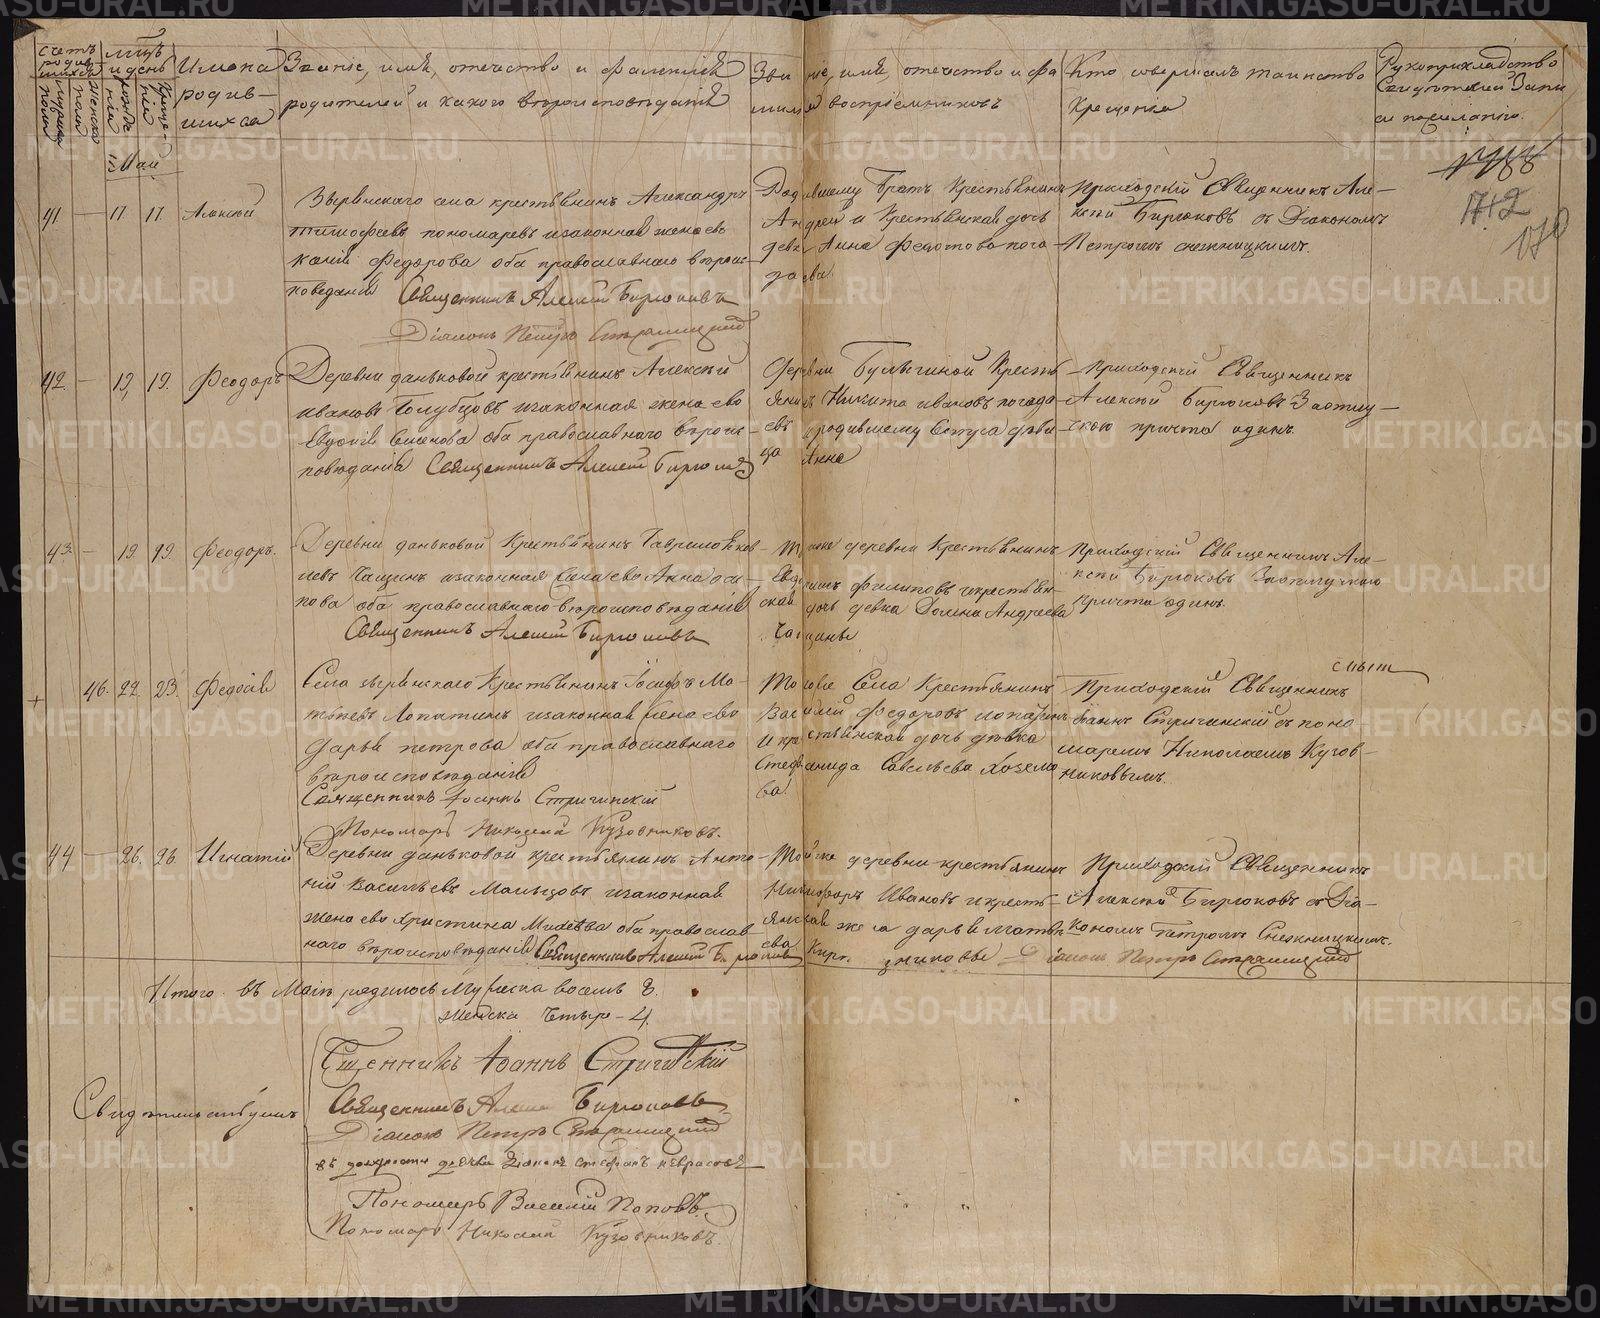 счетъ родившихся
мужеска пола
женска пола
мцъ и день
рожденія
крещенія
Имена родившихся
Званіе, имя, отечество и фамилія
родителей и какого вѣроисповѣданія
Званіе, имя, отечество и фамилія воспріемниковъ
Кто совершалъ таинство
крещенія
Рукоприкладство
свидѣтелей записи
по желанію.
Май
41 — 17. 17. Алексій
Звѣринскаго села крестьянинъ Александръ
Тимофеевъ Пономаревъ и законная жена его
Федорова оба православнаго вѣроис-
повѣданія Священникъ Алексій Бирюковъ
Діаконъ Петръ
Родившему братъ крестьянинъ
Андрей и крестьянская дочь
девка Анна Федотова Пога-
даева.
Приходскій Священникъ Але-
ксій Бирюковъ съ Діакономъ
Петромъ
1788
1712
170
42. — 19, 19. Феодоръ
Деревни Даньковой крестьянинъ Алексѣй
Ивановъ Голубцовъ и законная жена его
Евдокія Семенова оба православнаго вѣроис-
повѣданія Священникъ Алексій Бирюковъ
Деревни Булыгиной крестья-
янинъ Никита Ивановъ Погада-
евъ и родившему сестра дѣви-
ца Анна
Приходскій Священникъ
Алексій Бирюковъ За отлуч-
кою причта одинъ.
43. — 19. 19. Феодоръ.
Деревни Даньковой крестьянинъ Гаврило Яков-
левъ Чащинъ и законная жена его Анна Оси-
пова оба православнаго вѣроисповѣданія
Священникъ Алексій Бирюковъ
Тоя же деревни крестьянинъ
Филиповъ и крестьян-
ская дочь девка Андреева
Чащины.
Приходскій Священникъ Але-
ксій Бирюковъ За отлучкою
причта одинъ.
46. 22. 23. Федосія
Села Звѣринскаго крестьянинъ Іосифъ Ма-
твѣевъ Лопатинъ и законная жена его
Дарья Петрова оба православнаго
вѣроисповѣданія
Священникъ Іоаннъ
Пономарь Николай Кузовниковъ.
Того же села крестьянинъ
Василій Федоровъ Лопатинъ
и крестьянская дочь дѣвка
Стефанида Савельева
ва.
Приходскій Священникъ
Іоаннъ съ поно-
маремъ Николаемъ Кузов-
никовымъ.
44 — 26. 26. Игнатій
Деревни Даньковой крестьянинъ Анто-
ній Васильевъ Мальцовъ и законная
жена его Христина Михѣева оба православ-
наго вѣроисповѣданія Священникъ Алексій Бирюковъ
Той же деревни крестьянинъ
Никифоръ Ивановъ и кресть-
янская жена Дарья Матвѣ-
ева
Приходскій Священникъ
Алексій Бирюковъ съ Діа-
кономъ Петромъ
Діаконъ Петръ
Итого въ Маѣ родилось мужеска восемь 8.
женска четыре – 4.
Свидѣтельствуемъ
Сщенникъ Іоаннъ
Священникъ Алексій Бирюковъ
Діаконъ Петръ
въ должности дьячка Діаконъ Стефанъ Некрасовъ
Пономарь Василій Поповъ.
Пономарь Николай Кузовниковъ.
METRIKI.GASO-URAL.RU